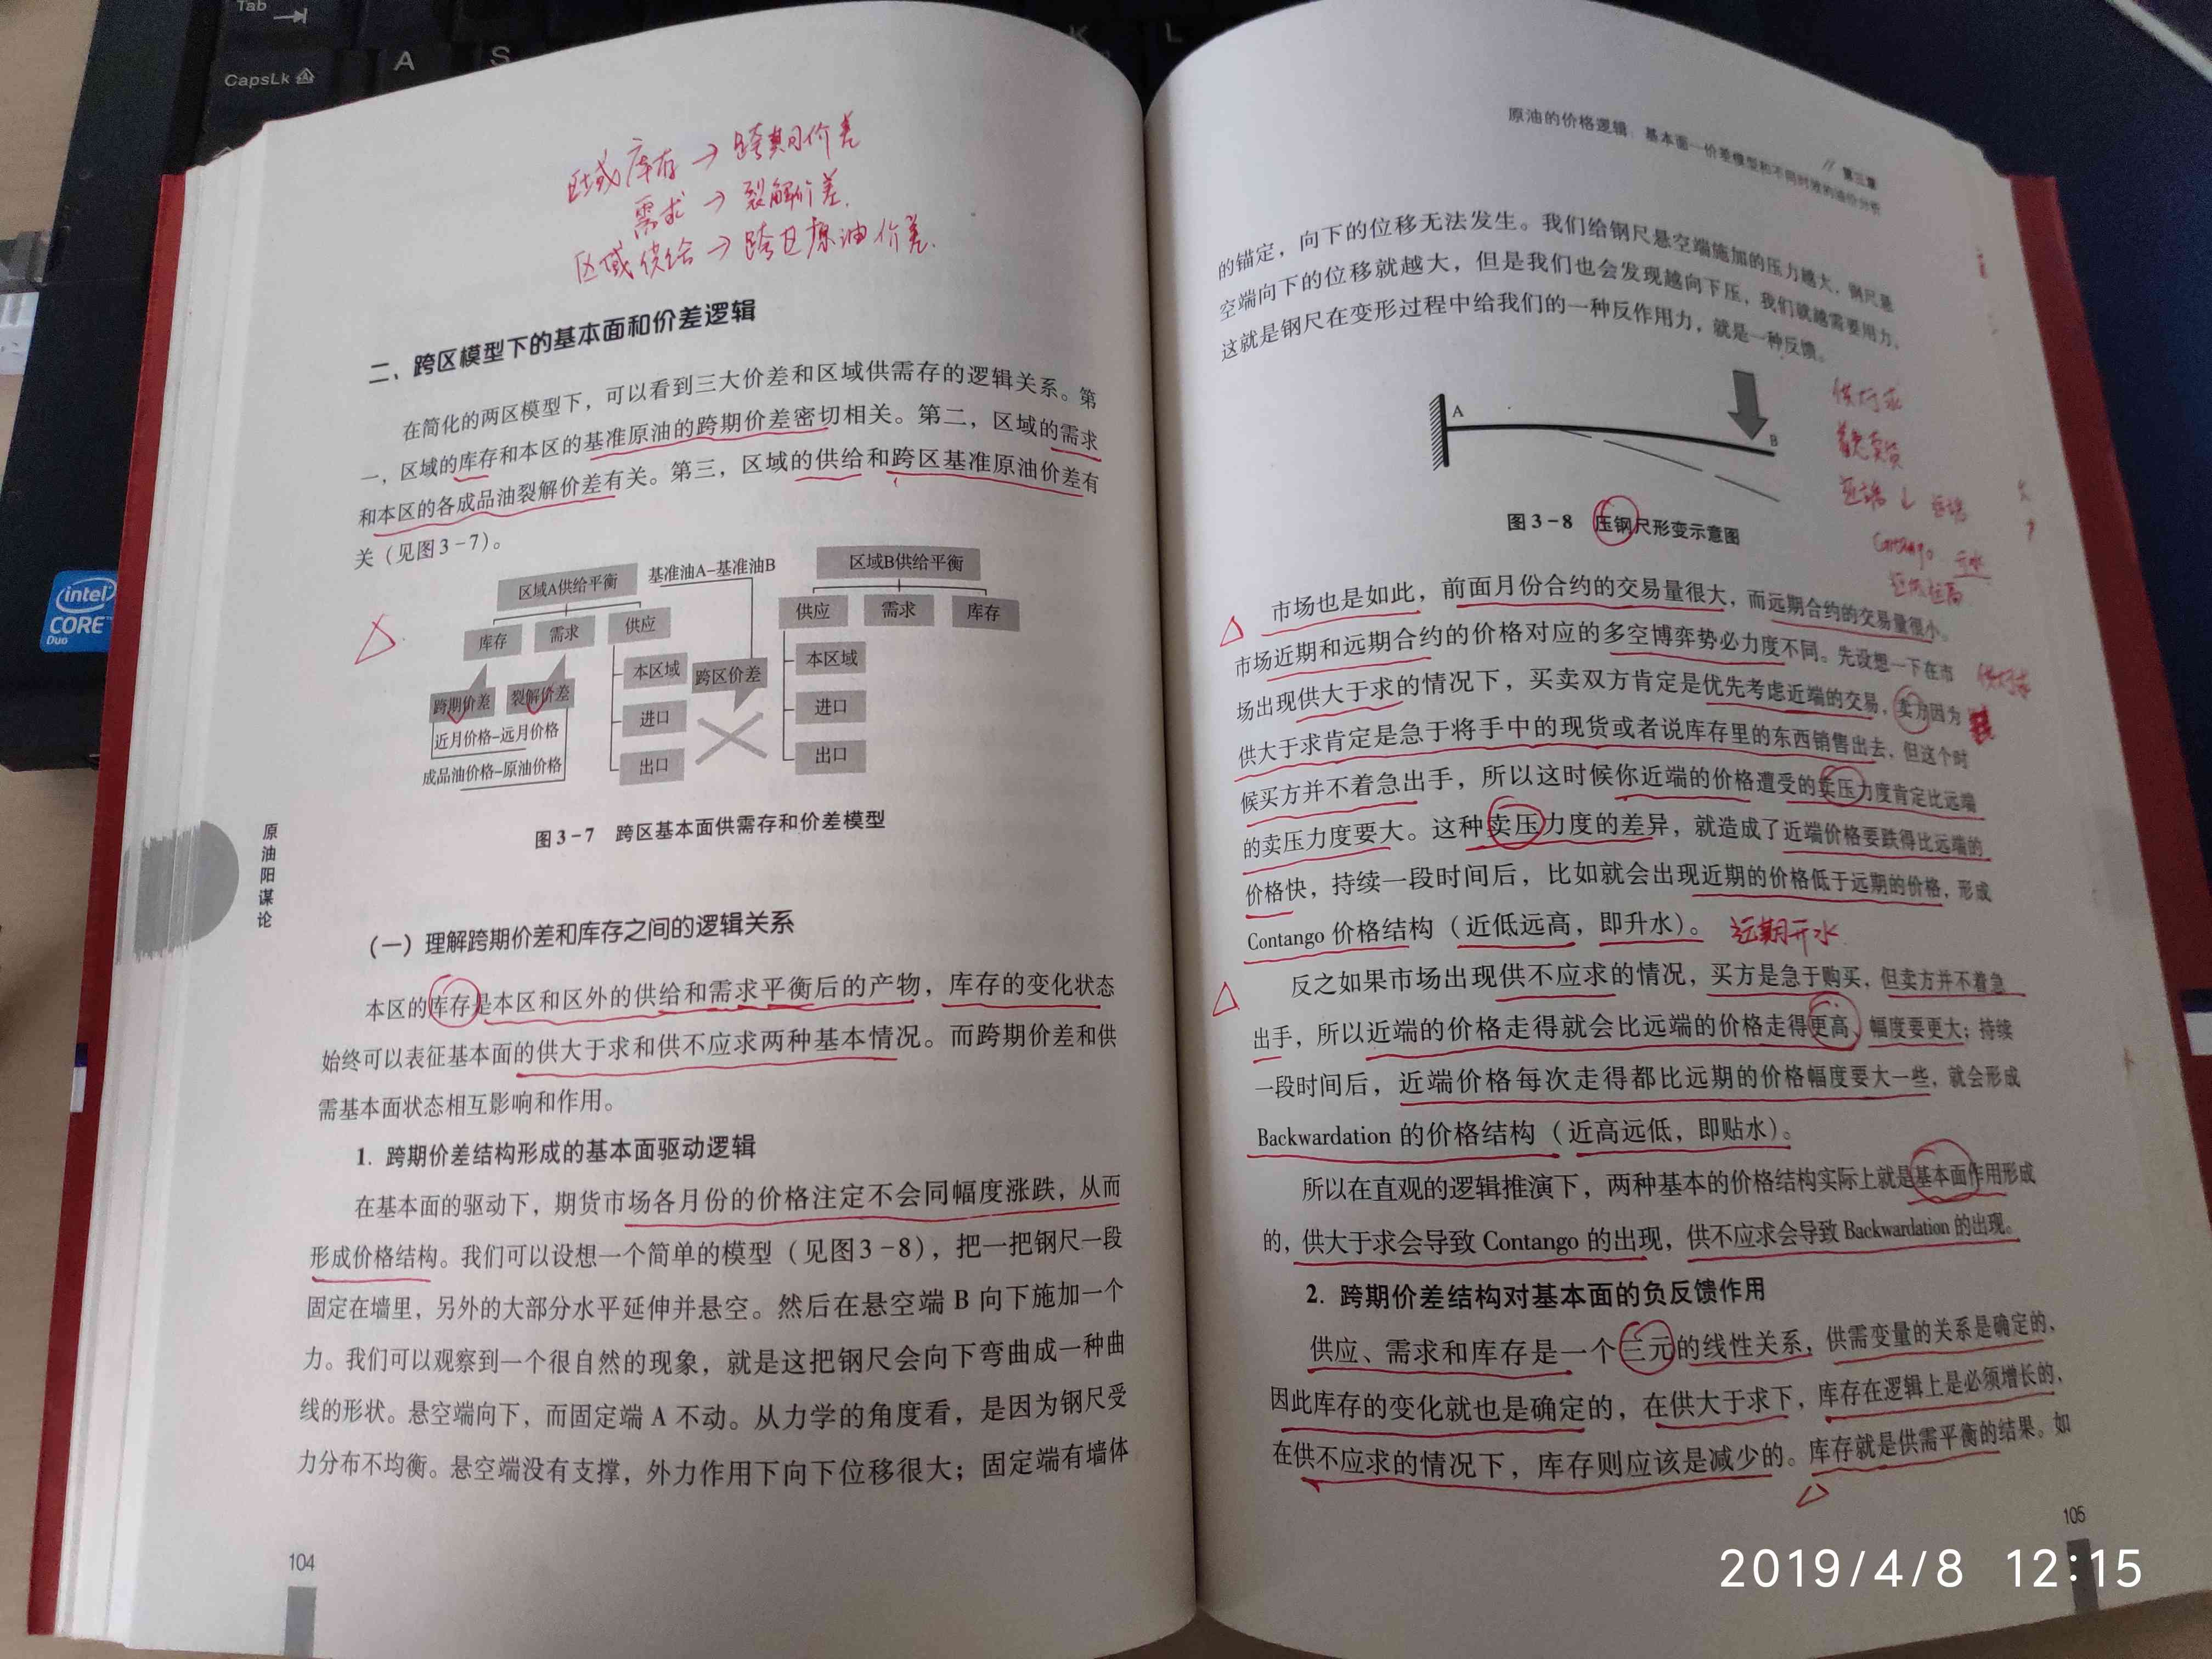 Tab
CapsLk
A
S
K
L
intel
CORE
Duo
区域库存→跨期价差
需求→裂解价差.
区域供给→跨区原油价差.
二、跨区模型下的基本面和价差逻辑
在简化的两区模型下，可以看到三大价差和区域供需存的逻辑关系。第
一，区域的库存和本区的基准原油的跨期价差密切相关。第二，区域的需求
和本区的各成品油裂解价差有关。第三，区域的供给和跨区基准原油价差有
关（见图3-7）。
区域A供给平衡
基准油A-基准油B
区域B供给平衡
库存
需求
供应
供应
需求
库存
跨期价差
裂解价差
本区域
跨区价差
本区域
近月价格-远月价格
进口
进口
成品油价格-原油价格
出口
出口
图3-7 跨区基本面供需存和价差模型
原油阳谋论
（一）理解跨期价差和库存之间的逻辑关系
本区的库存是本区和区外的供给和需求平衡后的产物，库存的变化状态
始终可以表征基本面的供大于求和供不应求两种基本情况。而跨期价差和供
需基本面状态相互影响和作用。
1. 跨期价差结构形成的基本面驱动逻辑
在基本面的驱动下，期货市场各月份的价格注定不会同幅度涨跌，从而
形成价格结构。我们可以设想一个简单的模型（见图3-8），把一把钢尺一段
固定在墙里，另外的大部分水平延伸并悬空。然后在悬空端 B 向下施加一个
力。我们可以观察到一个很自然的现象，就是这把钢尺会向下弯曲成一种曲
线的形状。悬空端向下，而固定端 A 不动。从力学的角度看，是因为钢尺受
力分布不均衡。悬空端没有支撑，外力作用下向下位移很大；固定端有墙体
104
第三章
原油的价格逻辑：基本面—价差模型和不同时效的油价分析
的锚定，向下的位移无法发生。我们给钢尺悬空端施加的压力越大，钢尺悬
空端向下的位移就越大，但是我们也会发现越向下压，我们就越需要用力，
这就是钢尺在变形过程中给我们的一种反作用力，就是一种反馈。
A
B
供大于求
着急卖货
近端↓
Contango
图3-8 压钢尺形变示意图
市场也是如此，前面月份合约的交易量很大，而远期合约的交易量很小。
市场近期和远期合约的价格对应的多空博弈势必力度不同。先设想一下在市
场出现供大于求的情况下，买卖双方肯定是优先考虑近端的交易，卖方因为
供大于求
供大于求肯定是急于将手中的现货或者说库存里的东西销售出去，但这个时
候买方并不着急出手，所以这时候你近端的价格遭受的卖压力度肯定比远端
的卖压力度要大。这种卖压力度的差异，就造成了近端价格要跌得比远端的
价格快，持续一段时间后，比如就会出现近期的价格低于远期的价格，形成
Contango 价格结构（近低远高，即升水）。 远期升水
反之如果市场出现供不应求的情况，买方是急于购买，但卖方并不着急
出手，所以近端的价格走得就会比远端的价格走得更高、幅度要更大；持续
一段时间后，近端价格每次走得都比远期的价格幅度要大一些，就会形成
Backwardation 的价格结构（近高远低，即贴水）。
所以在直观的逻辑推演下，两种基本的价格结构实际上就是基本面作用形成
的，供大于求会导致 Contango 的出现，供不应求会导致 Backwardation 的出现。
2. 跨期价差结构对基本面的负反馈作用
供应、需求和库存是一个三元的线性关系，供需变量的关系是确定的，
因此库存的变化就也是确定的，在供大于求下，库存在逻辑上是必须增长的，
在供不应求的情况下，库存则应该是减少的。库存就是供需平衡的结果。如
105
2019/4/8 12:15